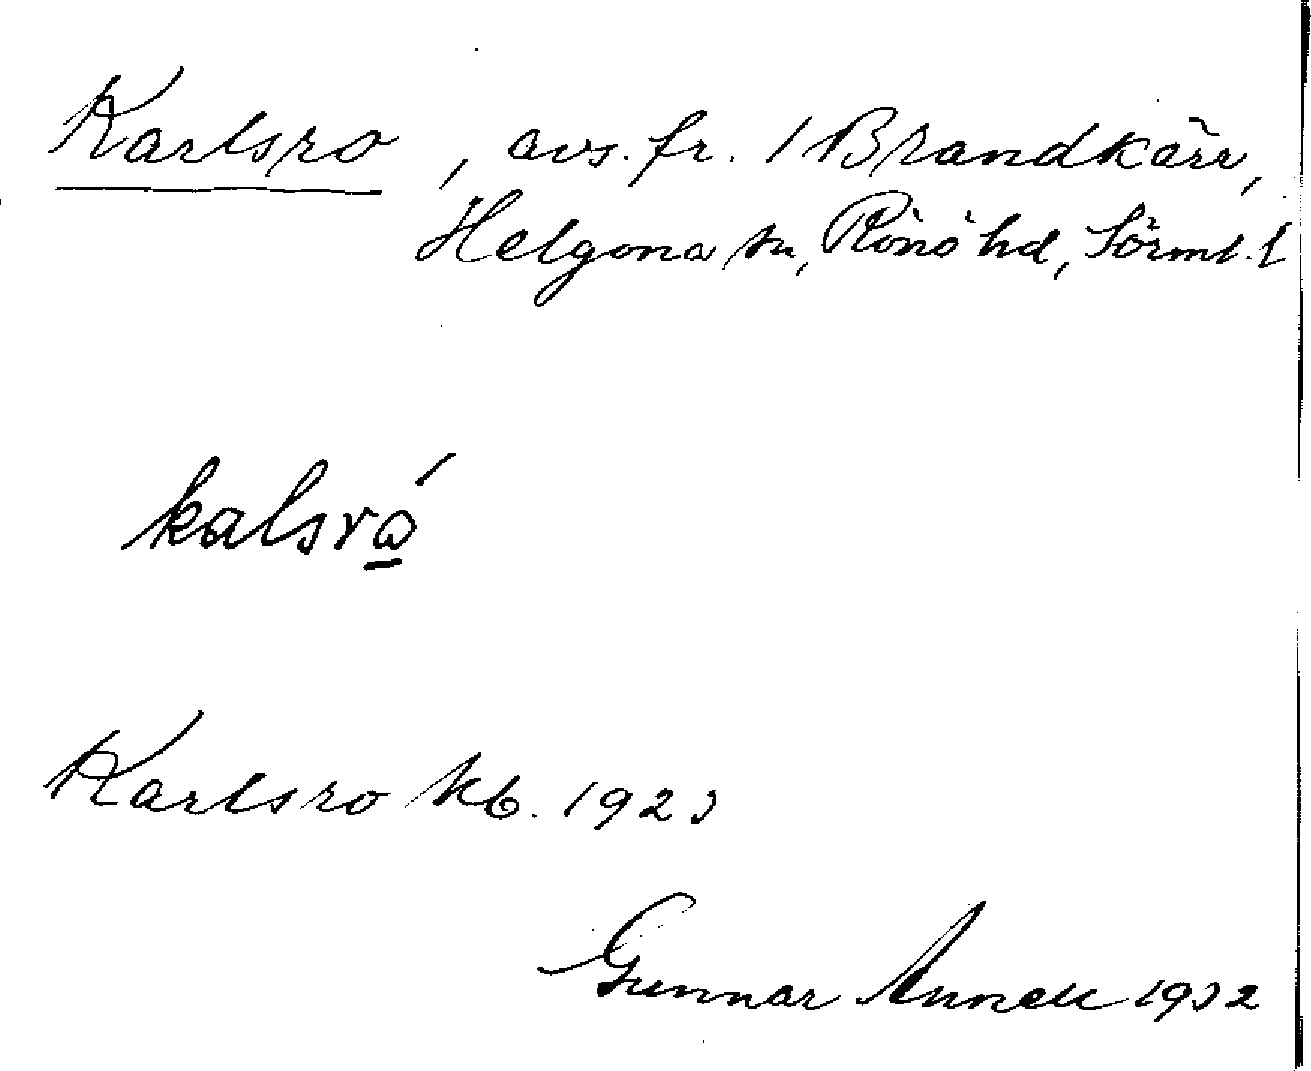 Karlsro, avs. fr. 1 Brandkärr,
Helgona sn, Rönö hd, Sörml. l
kalsrω̲´
Karlsro kb. 1923
Gunnar 1932